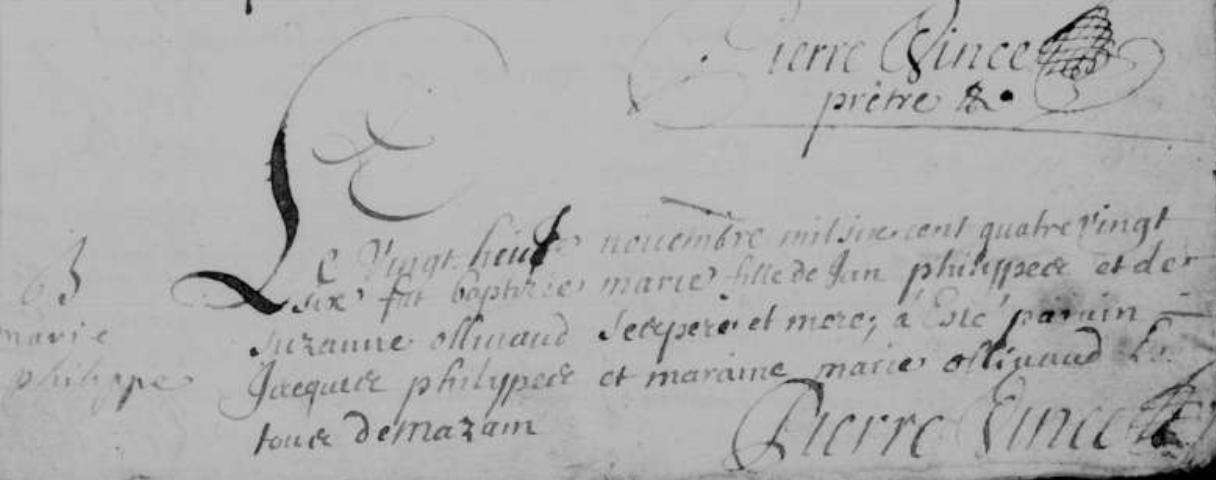 Pierre Vince
prêtre &.
63
marie
philippe
Le Vingt heut novembre mil six cent quatre Vingt
six fut baptisée marie fille de Jan philippes et de
suzanne ollivaud ses pere et mere; a Esté parain
Jacques philypes et maraine marie ollivaud
tous de mazain
Pierre Vince